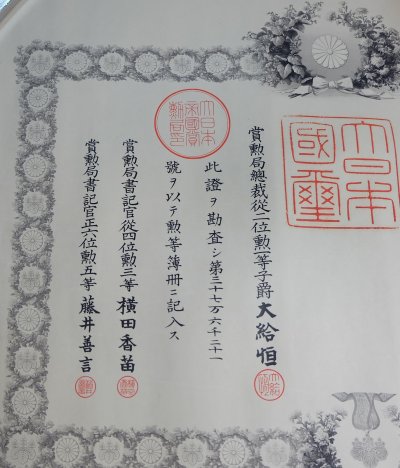 大日本國璽
賞勲局總裁從二位勲一等子爵大給恒
大日本帝國賞勲局印
此證ヲ勘査シ第三十七万六千二十一
號ヲ以テ勲等簿册ニ記入ス
賞勲局書記官從四位勲三等横田香苗
賞勲局書記官正六位勲五等藤井善言